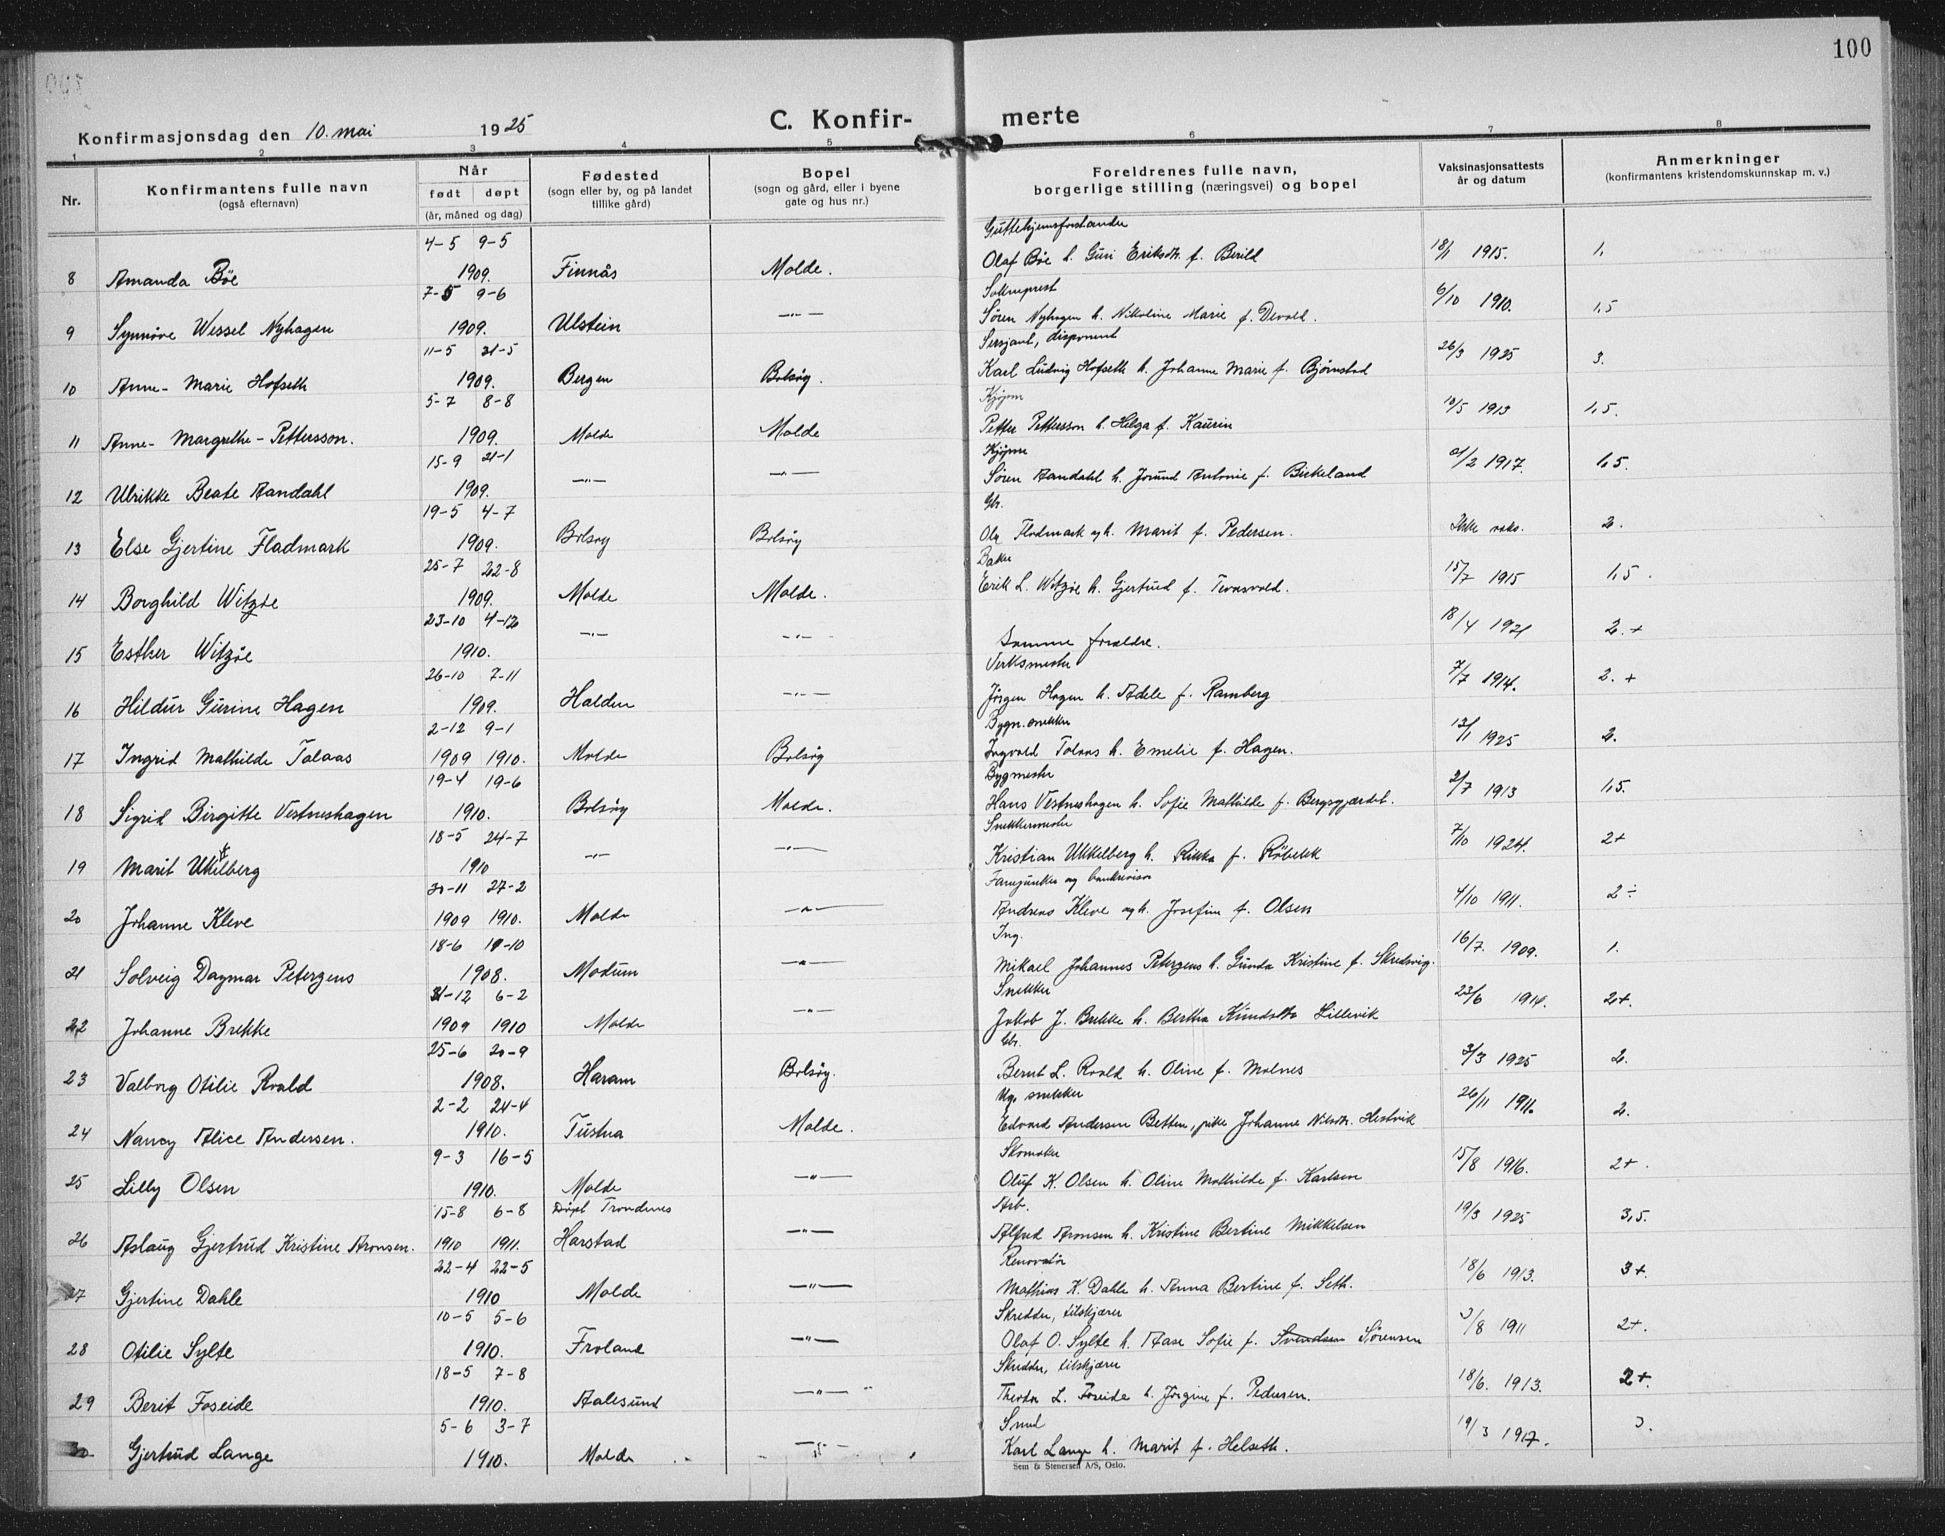 100
Konfirmasjonsdag den 10. mai 1925
C. Konfirmerte
1 2 3 4 5 6 7 8
Nr.
Konfirmantens fulle navn
(også efternavn)
Når
født døpt
(år, måned og dag)
Fødested
(sogn eller by, og på landet
tillike gård)
Bopel
(sogn og gård, eller i byene
gate og hus nr.)
Foreldrenes fulle navn,
borgerlige stilling (næringsvei) og bopel
Vaksinasjonsattests
år og datum
Anmerkninger
(konfirmantens kristendomskunnskap m. v.)
4-5 9-5 Guttehjemsforstander
8 Amanda Bøe 1909. Finnås Molde. Olaf Bøe h. Guri Eriksdtr. f. Berild 18/1 1915. 1,
7-5 9-6
9 Synnøve Wessel Nyhagen 1909. Ulstein —"— Søren Nyhagen h. Nikoline Marie f. Devold. 6/10 1910. 1,5
11-5 21-5 Sersjant, disponent
10 Anne-Marie Hofseth 1909. Bergen Bolsøy. Karl Ludvig Hofseth h. Johanne Marie f. Bjørnstad 26/3 1925 3.
5-7 8-8 Kjøpm
11 Anne-Margrethe-Pettersson. 1909. Molde Molde Petter Pettersson h. Helga f. Kaurin 10/5 1913 1,5.
15-9 21-1 Kjøpm
12 Ulrikke Beate Aandahl 1909. —"— —"— Søren Aandahl h. Jorund Antonie f. Birkeland 21/2 1917. 1,5.
19-5 4-7 Gbr.
13 Else Gjertine Fladmark 1909. Bolsøy Bolsøy Ola Fladmark og h. Marit f. Pedersen. Ikke vaks. 2.
25-7 22-8 Baker
14 Borghild Witzøe 1909. Molde Molde. Erik L. Witzøe h. Gjertrud f. 15/7 1915 1,5.
23-10 4-12
15 Esther Witzøe 1910. —"— —"— Samme forældre. 18/4 1921 2.+
26-10 7-11 Verksmester
16 Hildur Gurine Hagen 1909. Halden —"— Jørgen Hagen h. Adele f. Ramberg 7/7 1914. 2.+
2-12 9-1 Bygn. snekker
17 Ingrid Mathilde Tolaas 1909 1910. Molde Bolsøy Ingvald Tolaas h. Emelie f. Hagen. 13/1 1925 2.
19-4 19-6 Bygmester
18 Sigrid Birgitte Vestneshagen 1910. Bolsøy Molde. Hans Vestneshagen h. Sofie Mathilde f. Bergsgjærdet. 2/7 1913 1,5.
18-5 24-7 Snekkermester
19 Marit Utkelberg 1910 —"— —"— Kristian Utkelberg h. Rikka f. Røbekk 7/10 1924. 2+
30-11 27-2 Fanejunker og bankrevisor
20 Johanne Kleve 1909 1910. Molde —"— Andreas Kleve og h. Josefine f. Olsen 4/10 1911. 2÷
18-6 11-10 Ing.
21 Solveig Dagmar Petergens 1908. Modum —"— Mikael Johannes Petergens h. Gunda Kristine f. Skredsvig. 16/7. 1909. 1.
31-12 6-2 Snekker
22 Johanne Brekke 1909 1910 Molde —"— Jakob J. Brekke h. Bertha Knudsdtr Lillevik 23/6 1914. 2+.
25-6 20-9 Gbr.
23 Valborg Otilie Roald 1908. Haram Bolsøy. Bernt L. Roald h. Oline f. Molnes 3/3 1925 2.
2-2 24-4 Ug. snekker
24 Nancy Alice Andersen. 1910. Tustna Molde. Edvard Andersen Betten, pike Johanne Nilsdtr. Hestvik 26/11 1911. 2.
9-3 16-5 Skomaker
25 Lilly Olsen 1910. Molde —"— Oluf K. Olsen h. Oline Mathilde f. Karlsen 15/8 1916. 2+.
15-8 6-8 Døpt Trondenes Arb.
26 Aslaug Gjertrud Kristine Aronsen. 1910 1911. Harstad —"— Alfred Aronsen h. Kristine Bertine Mikkelsen 19/3 1925 3,5.
22-4 22-5 Renovatør
27 Gjertine Dahle 1910 Molde —"— Mathias K. Dahle h. Anna Bertine f. Seth. 18/6 1913. 3+.
10-5 5-6 Skredder, tilskjærer
28 Otilie Sylte 1910. Froland —"— Olaf O. Sylte h. Aase Sofie f. Svendsen Sørensen 3/8 1911 2+.
18-5 7-8 Skredder, tilskjærer
29 Berit Foseide 1910. Aalesund —"— Theodor L. Foseide h. Jørgine f. Pedersen. 18/6. 1913. 2+.
5-6 3-7 Smed
30 Gjertrud Lange 1910. Molde —"— Karl Lange h. Marit f. Helseth. 19/3 1917. 3.
Sem & Stenersen A/S, Oslo.